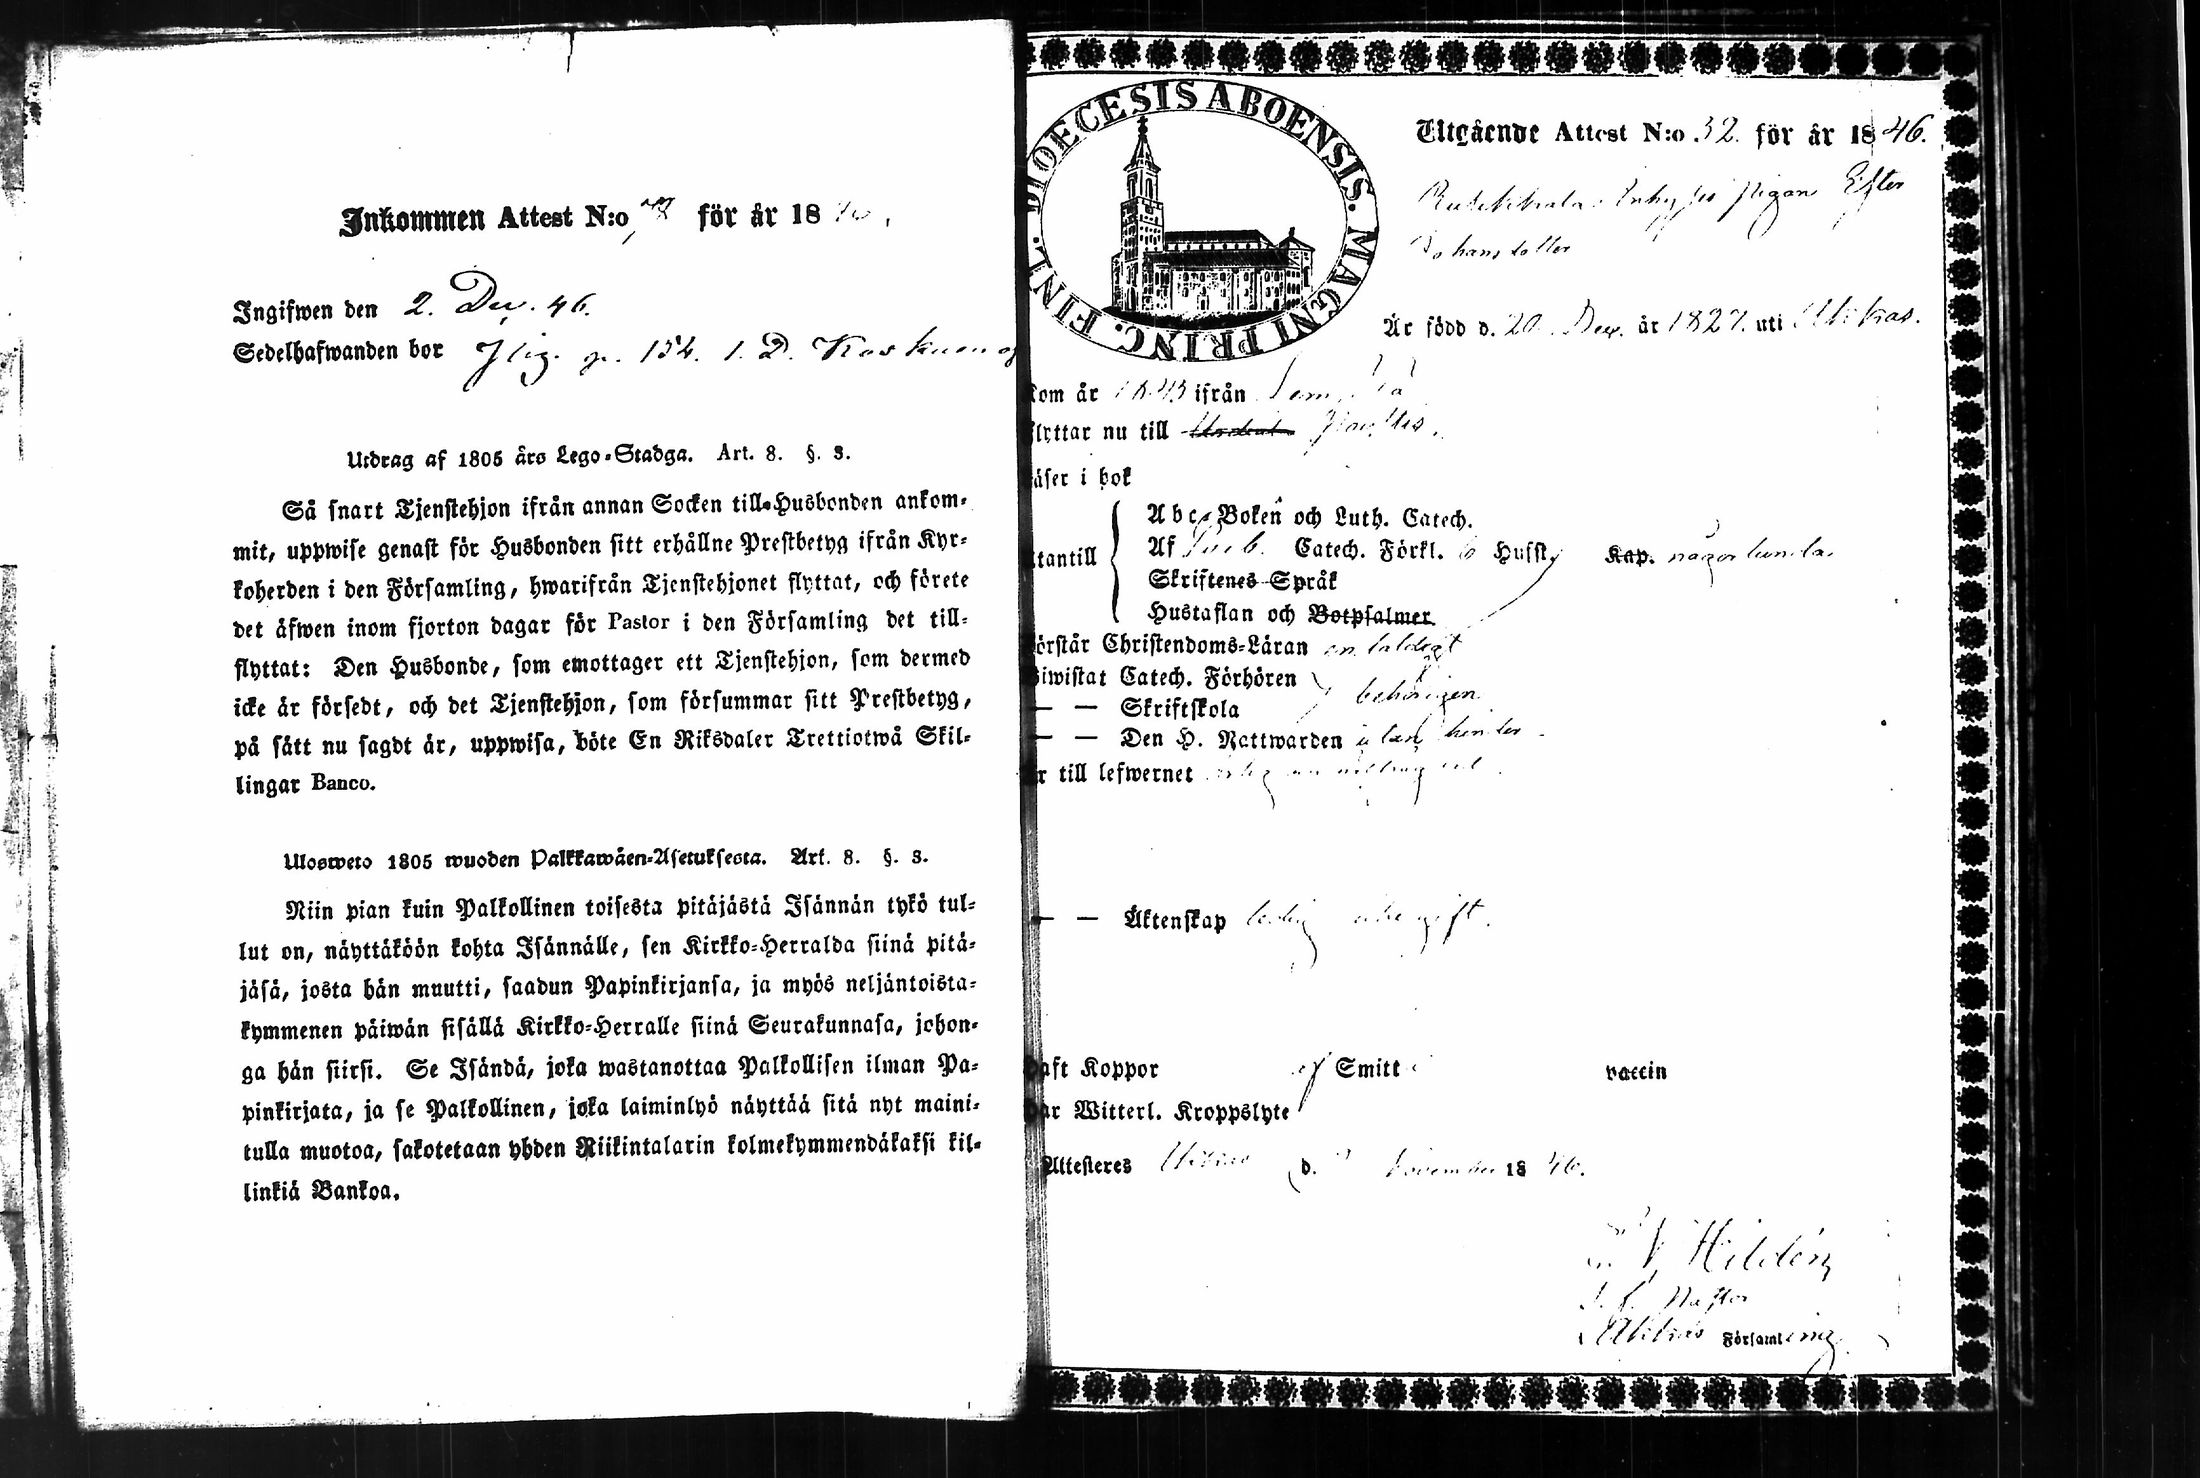 Inkommen Attest N:o för år 18
Ingifwen den 2. Dec. 46.
Sedelhafwanden bor p. 154. 1. D.
Utdrag af 1805 års Lego-Stadga. Art. 8. §. 3.
Så snart Tjenstehjon ifrån annan Socken till Husbonden ankom-
mit, uppwise genast för Husbonden sitt erhållne Prestbetyg ifrån Kyr-
koherden i den Församling, hwarifrån Tjenstehjonet flyttat, och förete
det äfwen inom fjorton dagar för Pastor i den Församling det till-
flyttat: Den Husbonde, som emottager ett Tjenstehjon, som dermed
icke är försedt, och det Tjenstehjon, som försummar sitt Prestbetyg,
på sätt nu sagdt är, uppwisa, böte En Riksdaler Trettiotwå Skil-
lingar Banco.
Ulosweto 1805 wuoden Palkkawäen-Asetuksesta. Art. 8. §. 3.
Niin pian kuin Palkollinen toisesta pitäjästä Isännän tykö tul-
lut on, näyttäköön kohta Isännälle, sen Kirkko-Herralda siinä pitä-
jäsä, josta hän muutti, saadun Papinkirjansa, ja myös neljäntoista-
kymmenen päiwän sisällä Kirkko-Herralle siinä Seurakunnasa, johon-
ga hän siirsi. Se Isändä, joka wastanottaa Palkollisen ilman Pa-
pinkirjata, ja se Palkollinen, joka laiminlyö näyttää sitä nyt maini-
tulla muotoa, sakotetaan yhden Riikintalarin kolmekymmendäkaksi kil-
linkiä Bankoa.
DIOECESIS ABOENSIS. MAGNI PRINC. FINL.
Utgående Attest N:o 32. för år 1846.
pigan Ester
Johansdotter
Är född d. 20 Dec. år 1827. uti
kom år 1843 ifrån
flyttar nu till
läser i bok
utantill
Abc-Boken och Luth. Catech.
Af Catech. Förkl. Husst. Kap. någorlunda
Skriftenes Språk
Hustaflan och Botpsalmer
Förstår Christendoms-Läran
Biwistat Catech. Förhören
— — Skriftskola behörigen
— — Den H. Nattwarden utan hinder
Är till lefwernet
— — Äktenskap ledig gift.
Haft Koppor Smitt vaccin
Har Witterl. Kroppslyte
Attesteres d. November 1846.
Hildén
Pastor
Församling